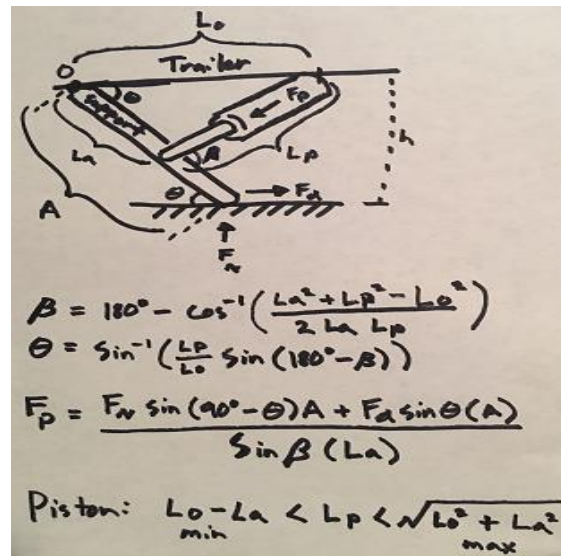 Lo
O
Trailer
θ
Support
Fp
La
β
Lp
h
A
θ
Fa
FN
β = 180° - cos⁻¹(La² + Lp² - Lo² / 2 La Lp)
θ = sin⁻¹(Lp/Lo sin(180° - β))
Fp = FN sin(90° - θ)A + Fa sinθ(A) / sinβ(La)
Piston: Lo - La < Lp < √Lo² + La²
min max